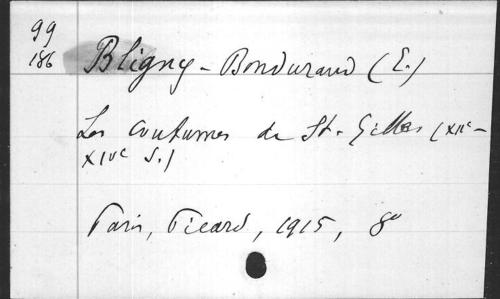 99
186
Bligny-Bondurand (E.)
Les Coutumes de St-Gilles (XIIe-
XIVe S.)
Paris, Picard, 1915, 8o